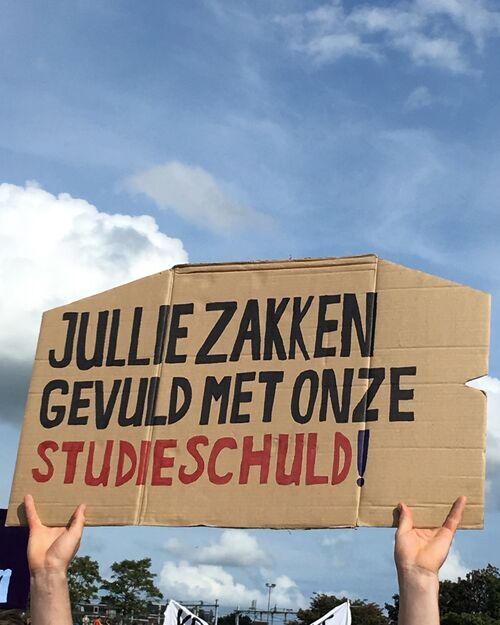 JULLIE ZAKKEN
GEVULD MET ONZE
STUDIESCHULD!